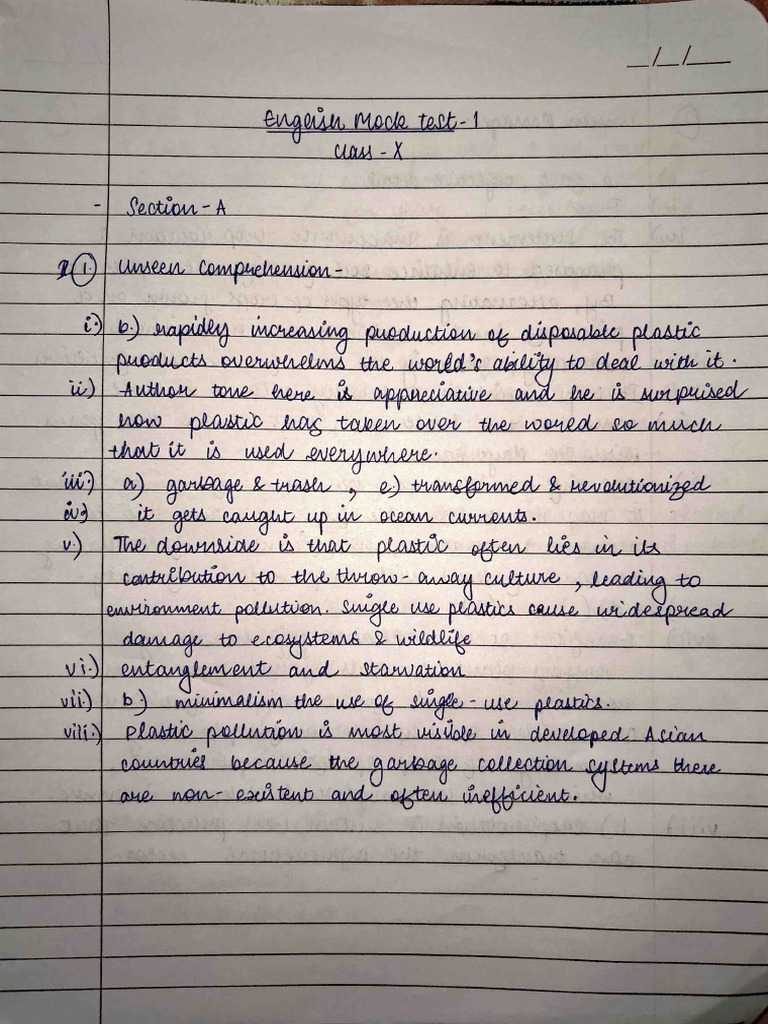 _/_/__
English Mock test-1
Class-X
- Section-A
1. Unseen Comprehension-
i.) b.) rapidly increasing production of disposable plastic
products overwhelms the world's ability to deal with it.
ii.) Author tone here is appreciative and he is surprised
how plastic has taken over the world so much
that it is used everywhere.
iii.) a.) garbage & trash, e.) transformed & revolutionized
iv.) it gets caught up in ocean currents.
v.) The downside is that plastic often lies in its
contribution to the throw-away culture, leading to
environment pollution. Single use plastics cause widespread
damage to ecosystems & wildlife
vi.) entanglement and starvation
vii.) b.) minimalism the use of single-use plastics.
viii.) Plastic pollution is most visible in developed Asian
countries because the garbage collection systems there
are non-existent and often inefficient.